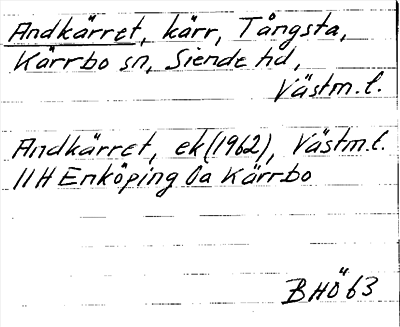 Andkärret, kärr, Tångsta,
Kärrbo sn, Siende hd,
Västm. l.
Andkärret, ek (1962), Västm. l.
11 H Enköping 0a Kärrbo
BHÖ 63